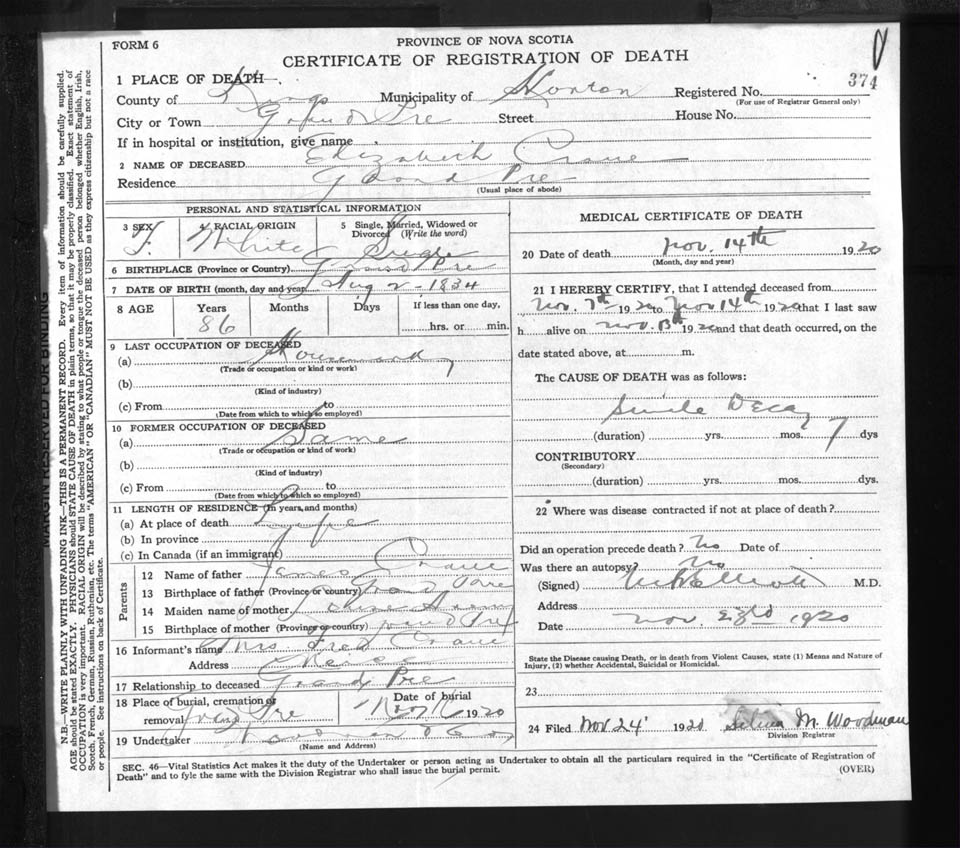 FORM 6
PROVINCE OF NOVA SCOTIA
CERTIFICATE OF REGISTRATION OF DEATH
374
1 PLACE OF DEATH
County of Kings Municipality of Horton Registered No.
(For use of Registrar General only)
City or Town Grand Pre Street House No.
If in hospital or institution, give name
2 NAME OF DECEASED Elizabeth Crane
Residence Grand Pre
(Usual place of abode)
PERSONAL AND STATISTICAL INFORMATION
3 SEX F. 4 RACIAL ORIGIN White 5 Single, Married, Widowed or Divorced (Write the word) Single
6 BIRTHPLACE (Province or Country) Grand Pre
7 DATE OF BIRTH (month, day and year) Aug 2 - 1834
8 AGE Years 86 Months Days If less than one day, hrs. or min.
9 LAST OCCUPATION OF DECEASED
(a)
(Trade or occupation or kind or work)
(b)
(Kind of industry)
(c) From to
(Date from which to which so employed)
10 FORMER OCCUPATION OF DECEASED
(a) Same
(Trade or occupation or kind of work)
(b)
(Kind of industry)
(c) From to
(Date from which to which so employed)
11 LENGTH OF RESIDENCE (In years, and months)
(a) At place of death Life
(b) In province
(c) In Canada (if an immigrant)
Parents
12 Name of father James Crane
13 Birthplace of father (Province or country) Grand Pre
14 Maiden name of mother
15 Birthplace of mother (Province or country) Grand Pre
16 Informant's name Mrs Fred Crane
Address
17 Relationship to deceased Grand Pre
18 Place of burial, cremation or removal Grand Pre Date of burial Nov 16 1920
19 Undertaker Woodman & Co
(Name and Address)
MEDICAL CERTIFICATE OF DEATH
20 Date of death Nov. 14th 1920
(Month, day and year)
21 I HEREBY CERTIFY, that I attended deceased from
Nov. 7th 1920 to Nov 14th 1920 that I last saw
h alive on Nov. 13th 1920 and that death occurred, on the
date stated above, at m.
The CAUSE OF DEATH was as follows:
Senile Decay
(duration) yrs. mos. 7 dys
CONTRIBUTORY
(Secondary)
(duration) yrs. mos. dys.
22 Where was disease contracted if not at place of death?
Did an operation precede death? No Date of
Was there an autopsy? No
(Signed) M.D.
Address
Date Nov. 23rd 1920
State the Disease causing Death, or in death from Violent Causes, state (1) Means and Nature of
Injury, (2) whether Accidental, Suicidal or Homicidal.
23
24 Filed Nov 24 1920 Selina M. Woodman
Division Registrar
SEC. 46—Vital Statistics Act makes it the duty of the Undertaker or person acting as Undertaker to obtain all the particulars required in the "Certificate of Registration of
Death" and to fyle the same with the Division Registrar who shall issue the burial permit.
(OVER)
MARGIN RESERVED FOR BINDING
N.B.—WRITE PLAINLY WITH UNFADING INK—THIS IS A PERMANENT RECORD. Every item of information should be carefully supplied.
AGE should be stated EXACTLY. PHYSICIANS should STATE CAUSE OF DEATH in plain terms, so that it may be properly classified. Exact statement of
OCCUPATION is very important. RACIAL ORIGIN will be described by stating to what people or tongue the deceased person belonged whether English, Irish,
Scotch, French, German, Russian, Ruthenian, etc. The terms "AMERICAN" OR "CANADIAN" MUST NOT BE USED as they express citizenship but not a race
or people. See instructions on back of Certificate.